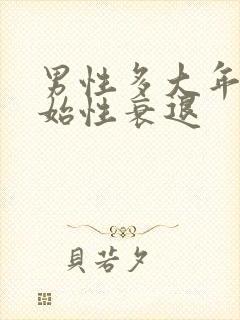 男性多大年
始性衰退
貝若夕